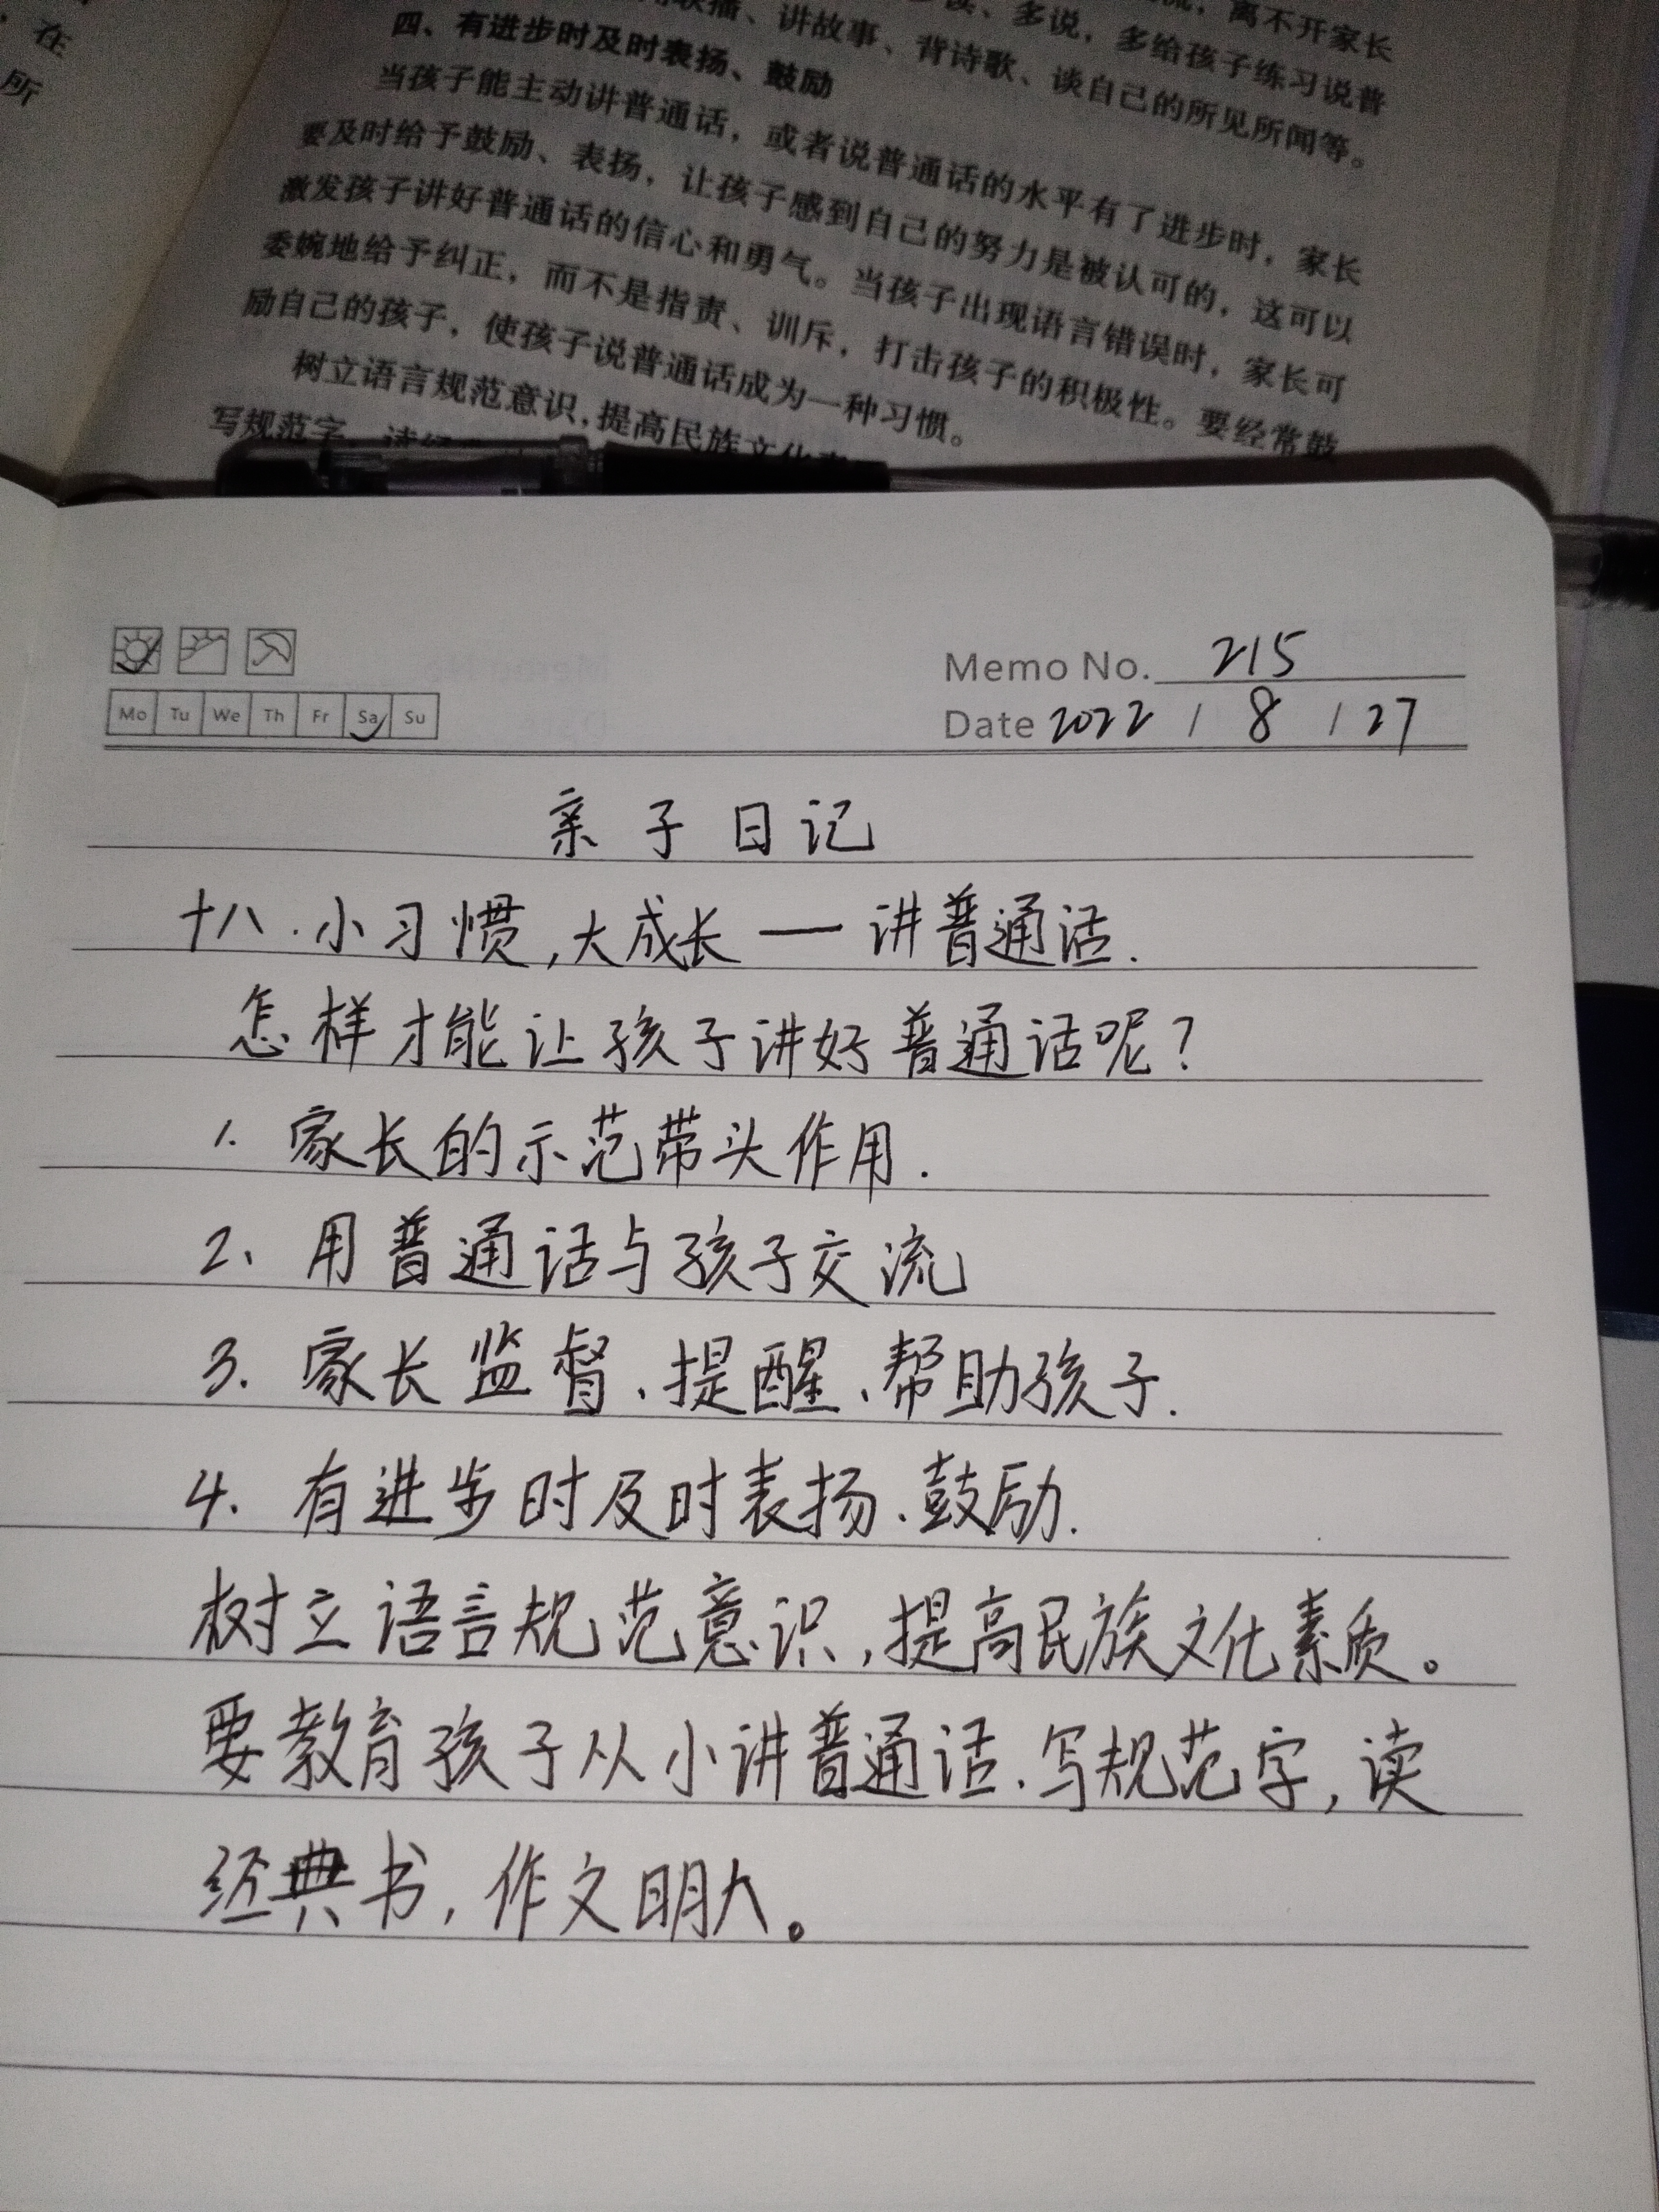 在
所
联播、讲故事、背诗歌、谈自己的所见所闻等。
多说，多给孩子练习说普
离不开家长
四、有进步时及时表扬、鼓励
当孩子能主动讲普通话，或者说普通话的水平有了进步时，家长
要及时给予鼓励、表扬，让孩子感到自己的努力是被认可的，这可以
激发孩子讲好普通话的信心和勇气。当孩子出现语言错误时，家长可
委婉地给予纠正，而不是指责、训斥，打击孩子的积极性。要经常鼓
励自己的孩子，使孩子说普通话成为一种习惯。
树立语言规范意识，提高民族文化
写规范字
Memo No. 215
Mo Tu We Th Fr Sa Su
Date 2022 / 8 / 27
亲子日记
十八.小习惯,大成长——讲普通话.
怎样才能让孩子讲好普通话呢?
1. 家长的示范带头作用.
2、用普通话与孩子交流
3. 家长监督、提醒、帮助孩子.
4. 有进步时及时表扬、鼓励.
树立语言规范意识,提高民族文化素质。
要教育孩子从小讲普通话、写规范字,读
经典书,作文明人。